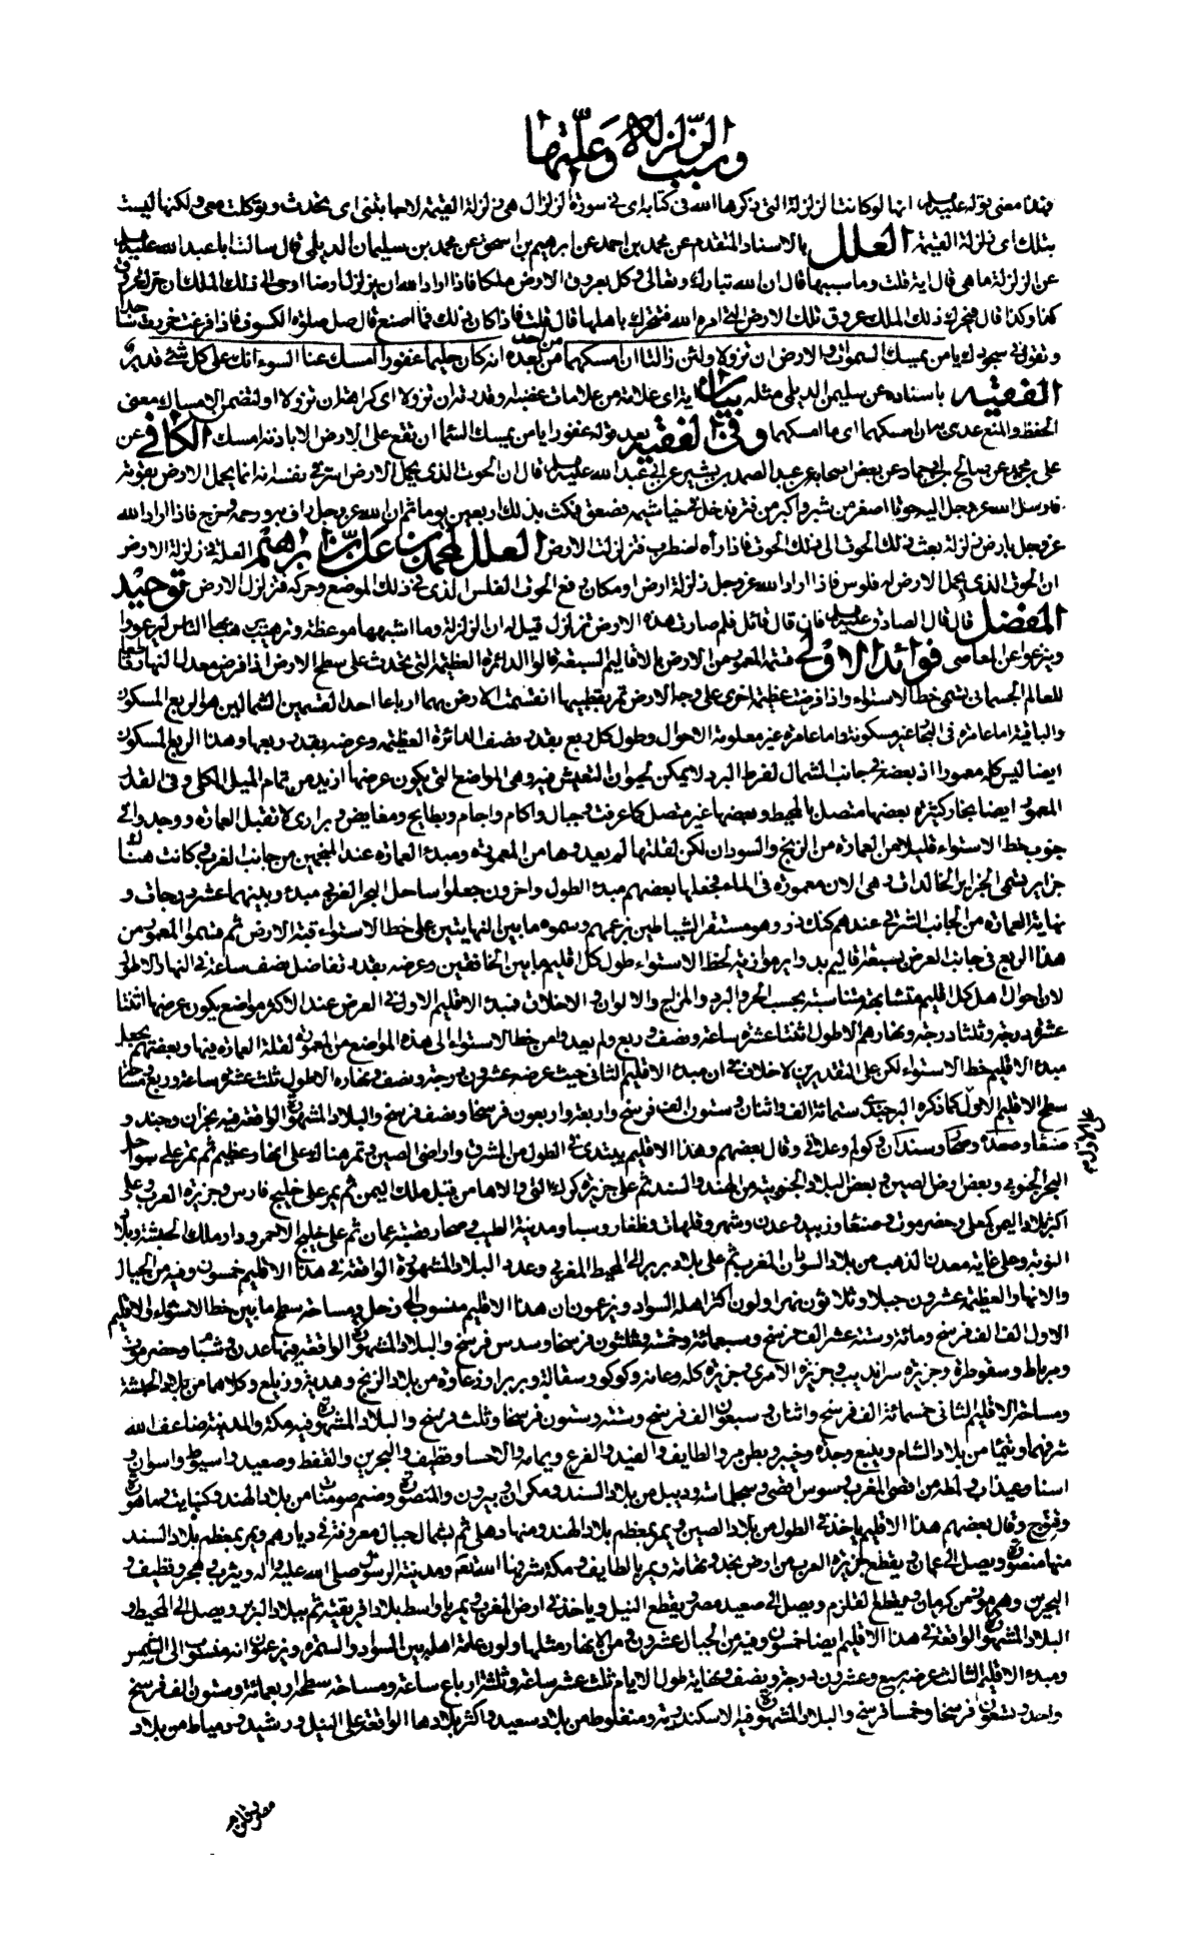 وسبب الزلزلة وعلّتها
فهذا معنى قوله عليه السلام انها لو كانت الزلزلة التي ذكرها الله في كتابه اى في سورة الزلزال هى زلزلة القيمة لاجابتنى اى بتحدث وتكلمت معى ولكنها ليست
بتلك اى زلزلة القيمة العلل بالاسناد المتقدم عن محمد بن احمد عن ابرهيم بن اسحق عن محمد بن سليمان الديلمى قال سالت ابا عبد الله عليه السلام
عن الزلزلة ما هى قال اية قلت وما سببها قال ان الله تبارك وتعالى وكل بعروق الارض ملكا فاذا اراد الله ان يزلزل ارضا اوحى الى ذلك الملك ان حرك عروق
كذا وكذا قال فيحرك ذلك الملك عروق تلك الارض التى امره الله فتتحرك باهلها قال قلت فاذا كان ذلك فما اصنع قال صل صلوة الكسوف فاذا فرغت خررت ساجدا
وتقول في سجودك يا من يمسك السموات والارض ان تزولا ولئن زالتا ان امسكهما من احد من بعده انه كان حليما غفورا امسك عنا السوء انك على كل شئ قدير
الفقيه باسناده عن سليمن الديلمى مثله بيان اية اى علامة من علامات غضبه وقدرته ان تزولا اى كراهة ان تزولا او لتضمن الامساك معنى
الحفظ والمنع عدى بها ان امسكهما اى ما امسكهما وفى الفقيه بعد قوله غفورا يا من يمسك السماء ان تقع على الارض الا باذنه امسك الكافى عن
على بن محمد عن صالح بن ابى حماد عن بعض اصحابه عن عبد الصمد بن بشير عن ابى عبد الله عليه السلام قال ان الحوت الذى يحمل الارض اسر في نفسه انه انما يحمل الارض بقوته
فارسل الله عز وجل اليه حوتا اصغر من شبر واكبر من فتر فدخل في خياشيمه فصعق فمكث بذلك اربعين يوما ثم ان الله عز وجل راف به ورحمه وخرج فاذا اراد الله
عز وجل بارض زلزلة بعث ذلك الحوت الى ذلك الحوت فاذا رأه اضطرب فتزلزلت الارض العلل لمحمد بن على بن ابرهيم العلة في زلزلة الارض
ان الحوت الذى يحمل الارض له فلوس فاذا اراد الله عز وجل زلزلة ارض او مكان رفع الحوت الفلس الذى في ذلك الموضع وحركه فتزلزل الارض توحيد
المفضل قال قال الصادق عليه السلام فان قال قائل فلم صارت هذه الارض تزلزل قيل له ان الزلزلة وما اشبهها موعظة وترهيب يرهب بها الناس ليرعووا
وينزعوا عن المعاصى فوائد الاولى قسمة المعمور من الارض بالاقاليم السبعة قالوا الدائرة العظيمة التى تحدث على سطح الارض اذا فرض معدل النهار قاطعا
للعالم الجسمانى يسمى خط الاستواء واذا فرضت عظيمة اخرى على وجه الارض تمر بقطبيها انقسمت الارض بهما ارباعا احد القسمين الشماليين هو الربع المسكون
والباقية اما غامرة فى البحار غير مسكونة واما عامرة غير معلومة الاحوال وطول كل ربع بقدر نصف الدائرة العظيمة وعرضه بقدر ربعها وهذا الربع المسكون
ايضا ليس كله معمورا اذ بعضه في جانب الشمال لفرط البرد لا يمكن لحيوان التعيش فيه وهى المواضع التى يكون عرضها ازيد من تمام الميل الكلى وفى القدر
المعمور ايضا بحار كثيرة بعضها متصل بالمحيط وبعضها غير متصل كما عرفت وجبال واكام واجام وبطايح ومغايض وبرارى لا تقبل العمارة ووجد والى
جنوب خط الاستواء قليلا من العمارة من الزنج والسودان لكن لقلتها لم يعدوها من المعمورة ومبدء العمارة عند المنجمين من جانب الغرب وكانت هناك
جزاير تسمى الجزاير الخالدات وهى الان مغمورة فى الماء فجعلها بعضهم مبدء الطول واخرون جعلوا ساحل البحر الغربى مبدء وبينهما عشر درجات و
نهاية العمارة من الجانب الشرقى عندهم كنك دز وهو مستقر الشياطين بزعمهم وسموه ما بين النهايتين على خط الاستواء قبة الارض ثم قسموا المعمور من
هذا الربع فى جانب العرض بسبعة اقاليم بدواير موازية لخط الاستواء طول كل اقليم ما بين الخافقين وعرضه بقدر تفاضل نصف ساعة في النهار الاطول
لان احوال اهل كل اقليم متشابهة متناسبة بحسب الحر والبرد والمزاج والالوان والاخلاق فمبدء الاقليم الاول في العرض عند الاكثر مواضع يكون عرضها اثنتا
عشرة درجة وثلثا درجة ونهارهم الاطول اثنتا عشرة ساعة ونصف وربع ولم يعدوا من خط الاستواء الى هذه المواضع من المعمور لقلة العمارة فيها وبعضهم يجعل
مبدء الاقليم خط الاستواء لكن على التقديرين لا خلاف في ان مبدء الاقليم الثانى حيث عرضه عشرون درجة ونصف ونهاره الاطول ثلث عشرة ساعة وربع ومساحة
سطح الاقليم الاول كما ذكره البرجندى ستمائة الف واثنان وستون الف فرسخ واربعة واربعون فرسخا ونصف فرسخ والبلاد المشهورة الواقعة فيه نجران وجند و
صنعا وصعدة وصحار وسندان وكولم وعدلانى وقال بعضهم وهذا الاقليم يبتدى في الطول من المشرق واراضى الصين وتمر هناك على انهار عظيمة ثم تمر على سواحل
البحر الجنوبى وبعض ارض الصين وبعض البلاد الجنوبية من الهند والسند ثم على جزيرة كرك التى والاها من قبل ملك اليمن ثم يمر على خليج فارس وجزيرة العرب وعلى
اكثر بلاد اليمن كمعلى وحضرموت وصنعا وزبيد وعدن وشهر وقلهات وظفار وسبا ومدينة الطيب وصحار وقصبة عمان ثم على خليج الاحمر ودار ملك الحبشة وبلاد
النوبة وعلى غانة معدن الذهب من بلاد السودان المغرب ثم على بلاد بربر الى المحيط المغربى وعدد البلاد المشهورة الواقعة في هذا الاقليم خمسون وفيه من الجبال
والانهار العظيمة عشرون جبلا وثلاثون نهرا ولون اكثر اهله السواد ويزعمون ان هذا الاقليم منسوب الى زحل ومساحة سطح ما بين خط الاستواء الى اقليم
الاول الف الف فرسخ ومائة وستة عشر الف فرسخ وسبعمائة وخمسة وثلثون فرسخا وسدس فرسخ والبلاد المشهورة الواقعة فيها عدن وشبام وحضرموت
ومرباط وسقوطرة وجزيرة سرانديب وجزيرة الامرى وجزيرة كله وعانة وكوكو وسفالة وبربرا وزغاوة من بلاد الزنج وهدية وزيلع وكلاهما من بلاد الحبشة
ومساحة الاقليم الثانى خمسمائة الف فرسخ واثنان وسبعون الف فرسخ وستة وستون فرسخا وثلث فرسخ والبلاد المشهورة فيه مكة والمدينة ضاعف الله
شرفهما وتيما من بلاد الشام وينبع وجدة وخيبر وبطن مر والطايف والفيد والفرع ويمامة والاحسا وقطيف والبحرين والقفط وصعيد واسيوط واسوان و
اسنا وعيذاب ولمطه من اقصى المغرب وسوس اقصى وسجلماسة وديبل من بلاد السند ومكران وبيرون والمنصورة وصنم صومنات من بلاد الهند وكنبايت وماهورة
وقنوج وقال بعضهم هذا الاقليم ياخذ في الطول من بلاد الصين ويمر بمعظم بلاد الهند ومنها دهلى ثم بشمال جبال معروفة في ديارهم ويمر بمعظم بلاد السند
منها منصورة ويصل الى عمان ويقطع جزيرة العرب من ارض نجد وتهامة ويمر بالطايف ومكة شرفها الله تعالى ومدينة الرسول صلى الله عليه واله ويثرب وهجر وقطيف و
البحرين وهرموز من كرمان ويقطع القلزم ويصل الى صعيد مصر ويقطع النيل وياخذ في ارض المغرب ويمر باواسط بلاد افريقية ثم ببلاد البربر ويصل الى المحيط و
البلاد المشهورة الواقعة في هذا الاقليم ايضا خمسون وفيه من الجبال عشرون ومن الانهار مثلها ولون عامة اهله بين السواد والسمرة ويزعمون انه منسوب الى الشمس
ومبدء الاقليم الثالث عرضه سبع وعشرون درجة ونصف ونهاية طول الايام ثلث عشر ساعة وثلثة ارباع ساعة ومساحة سطحه اربعمائة وستون الف فرسخ
واحد وتسعون فرسخا وخمسا فرسخ والبلاد المشهورة فيه الاسكندرية ومنفلوط من بلاد سعيد واكثر بلادها الواقعة على النيل ورشيد ودمياط من بلاد